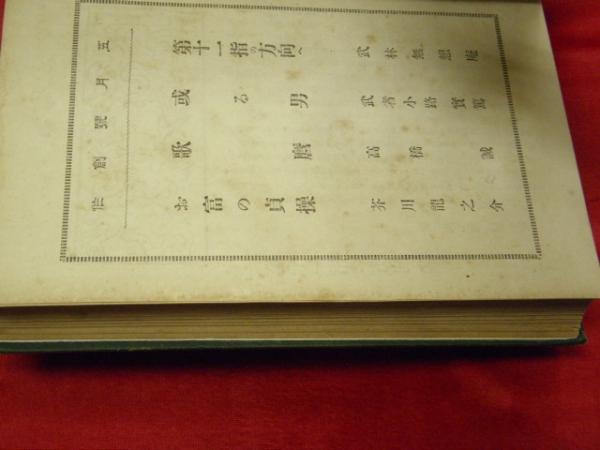 五月號創作
第十一指の方向へ 武林無想庵
或る男 武者小路實篤
歌麿 高橋誠
お富の貞操 芥川龍之介